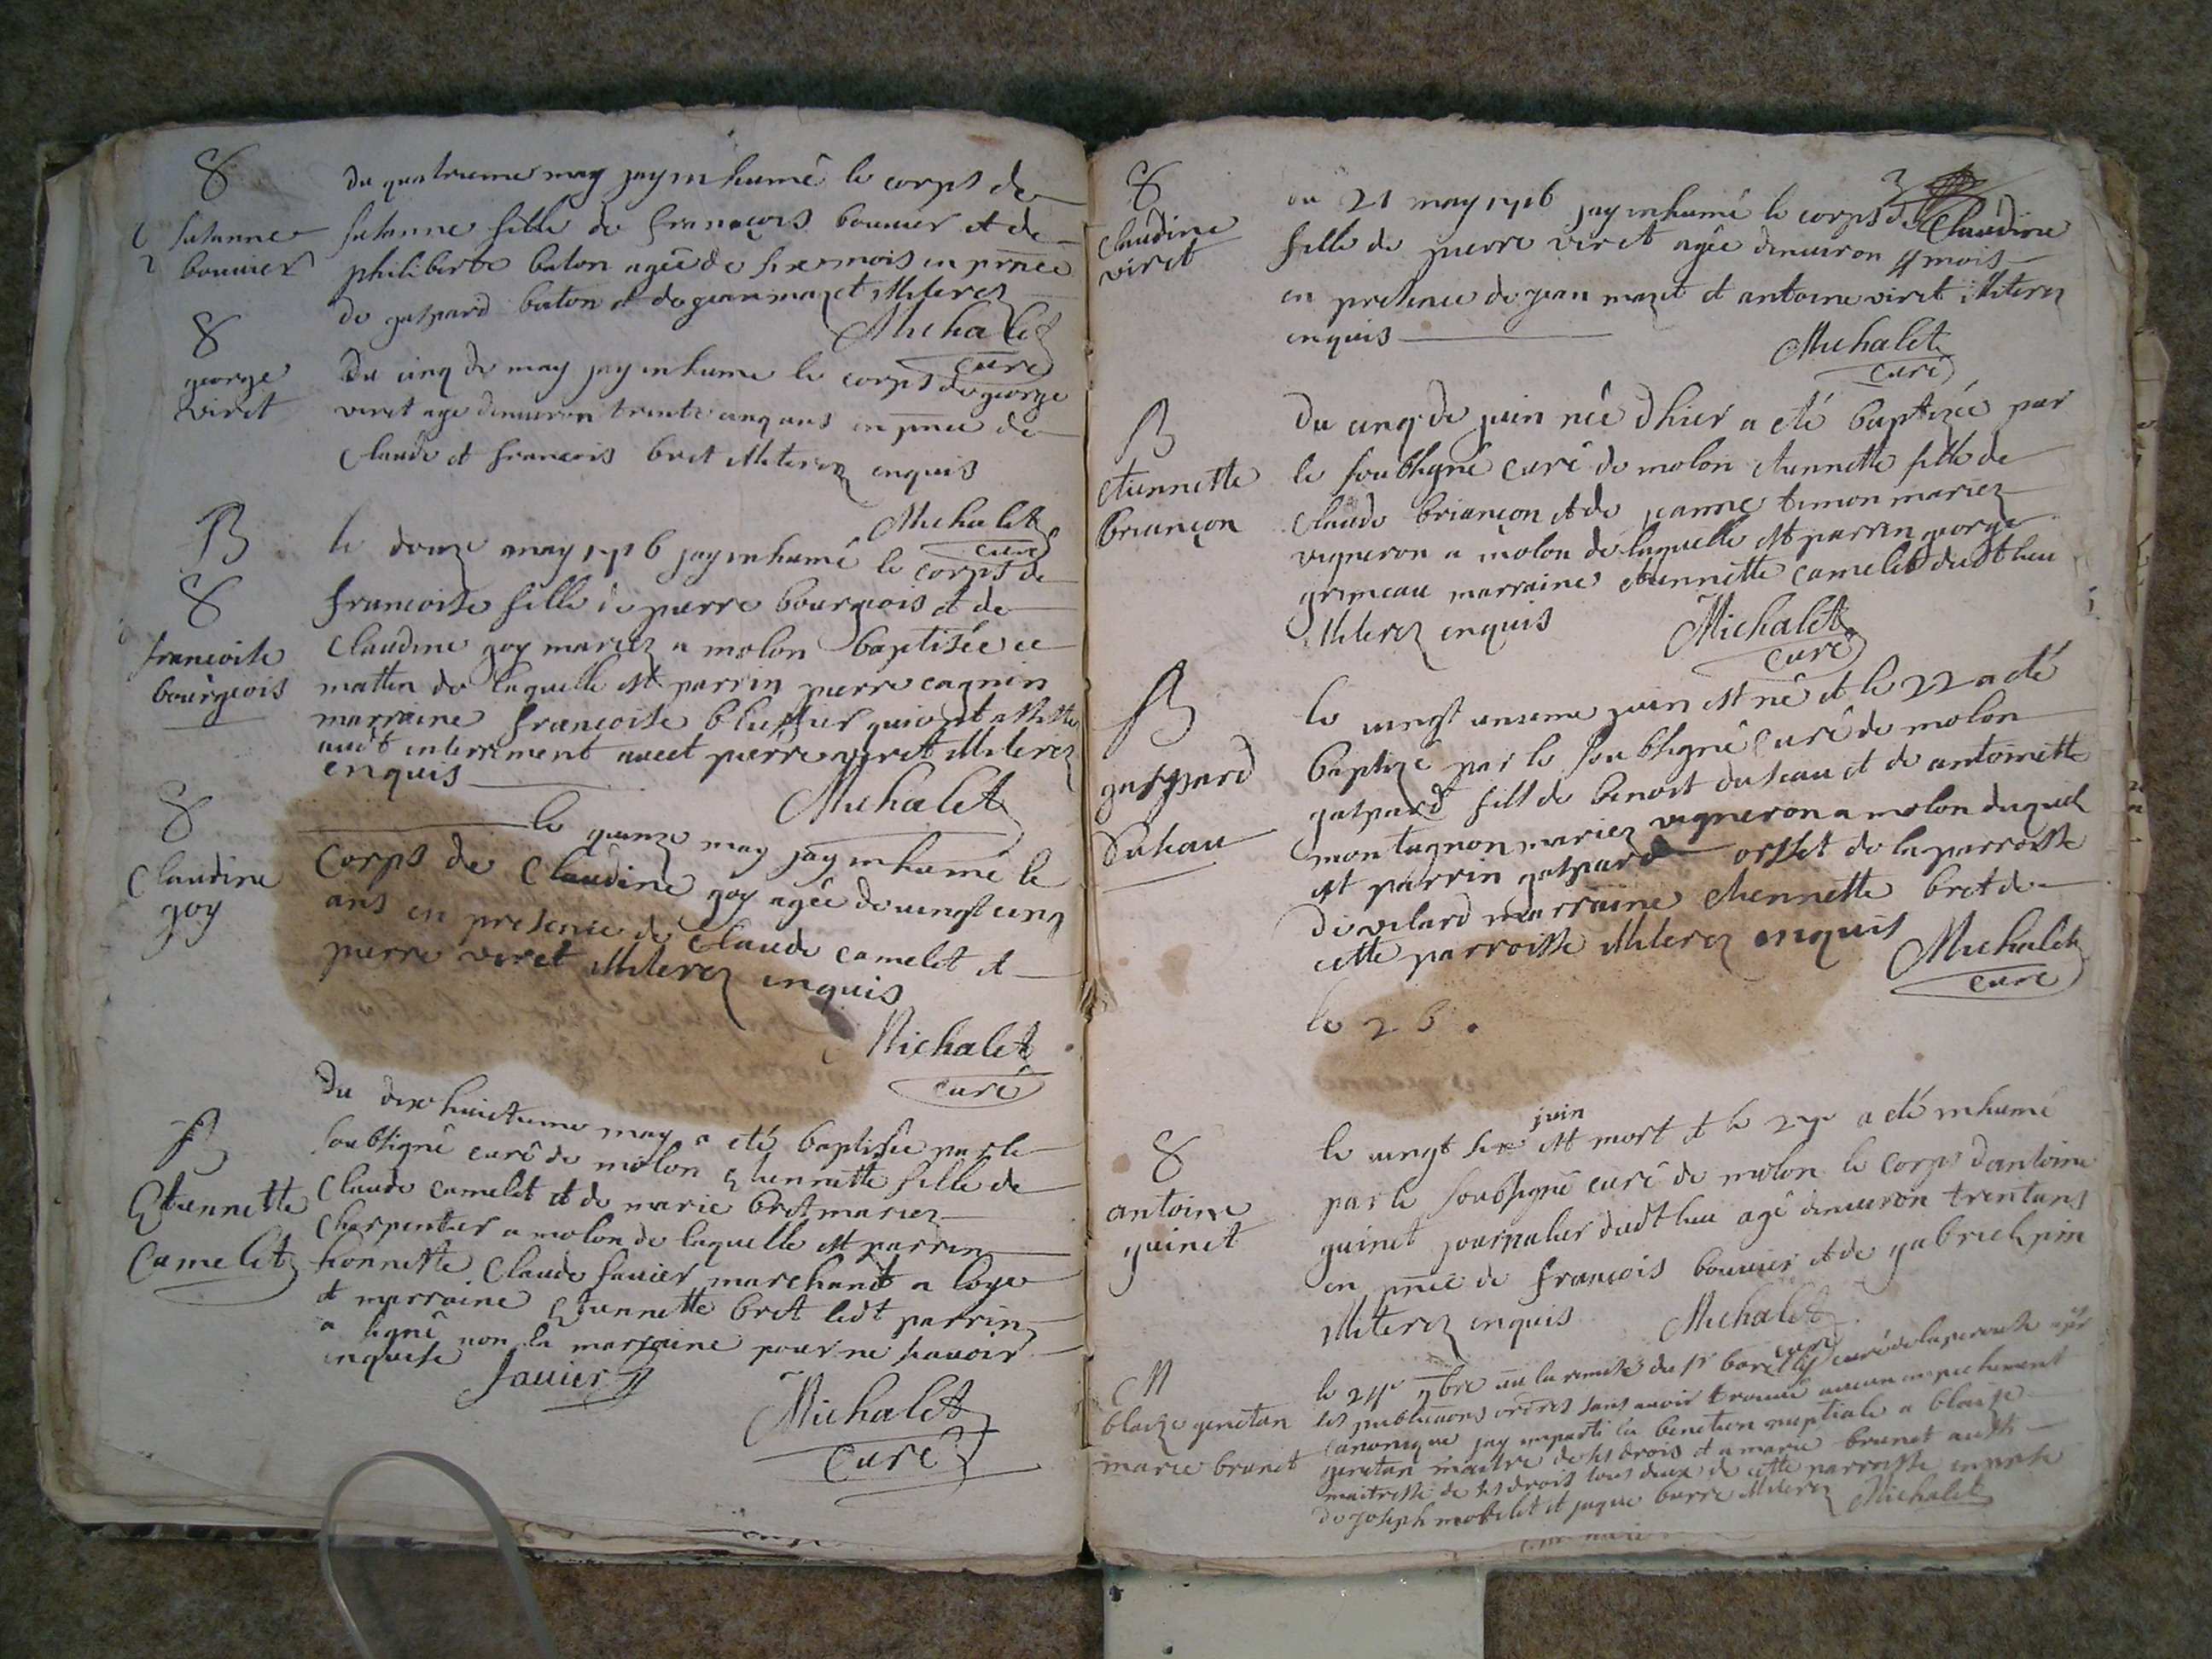 8
Susanne
bouuier
du quatrieme may jay inhumé le corps de
susanne fille de francois bouuier et de
philiberte baton agée de six mois en pnce
de gaspard baton et de jean mazet illiterez
Michalet
curé
8
george
viret
du cinq de may jay inhumé le corps de george
viret agé denuiron trente cinq ans en pnce de
Claude et francois bret illiterez enquis
Michalet
curé
B
8
francoise
bourgeois
le douze may 1716 jay inhumé le corps de
francoise fille de pierre bourgeois et de
Claudine goy mariez a molon baptisée ce
mattin de laquelle est parrin pierre cagnin
marraine francoise qui ont assisté
audt enterrement auect pierre viret illiterez
enquis
Michalet
8
Claudine
goy
le quinze may jay inhumé le
corps de Claudine goy agée de uingt cinq
ans en presence de Claude camelet et
pierre viret illiterez enquis
Michalet
curé
B
Etiennette
Camelet
Du dixhuictieme may a eté baptisée par le
soubsigné curé de molon Etiennette fille de
Claude camelet et de marie bret mariez
Charpentier a molon de laquelle est parrin
honnette Claude sauier marchant a loye
et marraine Etiennette bret ledt parrin
a signé non la marraine pour ne sauoir
enquise
Sauier
Michalet
Curé
3
8
Claudine
viret
du 21 may 1716 jay inhumé le corps de Claudine
fille de pierre viret agée denuiron mois
en presence de jean mazet et antoine viret illiterez
enquis
Michalet
curé
B
etiennette
briançon
Du cinq de juin née dhier a eté baptizée par
le soubsigné curé de molon etiennette fille de
Claude briançon et de jeanne timon mariez
vigneron a molon de laquelle est parrin george
grimeau marraine etiennette camelet dudt lieu
illiterez enquis
Michalet
curé
B
gaspard
Duseau
le uingt unieme juin est né et le 22 a eté
baptizé par le soubsigné curé de molon
gaspard fils de benoit duseau et de antoinette
montagnon mariez vigneron a molon duquel
est parrin gaspard orset de la parroisse
de vilard marraine etiennette bret de
cette parroisse illiterez enquis
Michalet
curé
le 26.
8
antoine
guinet
juin
le uingt six est mort et le 27e a eté inhumé
par le soubsigné curé de molon le corps dantoine
guinet journalier dudt lieu agé denuiron trent ans
en pnce de francois bouuier et de gabriel pin
illiterez enquis
Michalet
curé
M
blaize genetan
marie brunet
le 9bre uu la remise du sr curé de la peroute
les publications sans auoir trouué aucun empechement
canonique jay imparti la benetion nuptiale a blaize
genetan maitre de ses drois et a marie brunet aussi
maitresse de ses drois tous deux de cette parroisse
de joseph et jaque barre illiterez Michalet